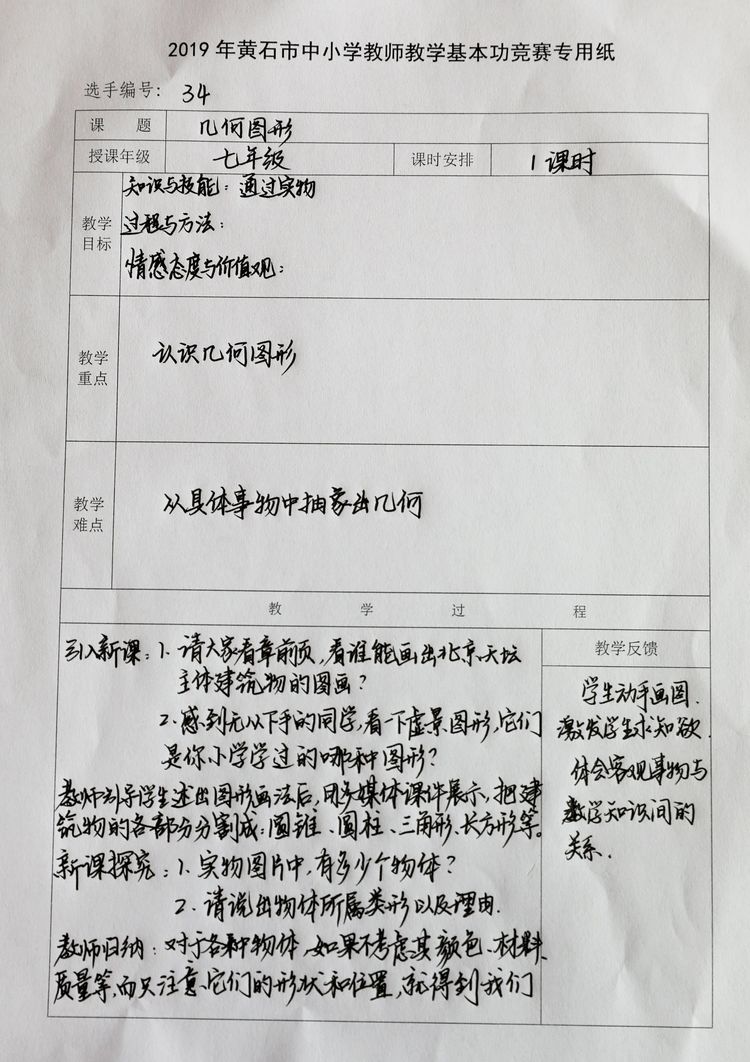 2019年黄石市中小学教师教学基本功竞赛专用纸
选手编号：34
课 题 几何图形
授课年级 七年级 课时安排 1课时
教学目标
知识与技能：通过实物
过程与方法：
情感态度与价值观：
教学重点
认识几何图形
教学难点
从具体事物中抽象出几何
教 学 过 程
引入新课：1. 请大家看章前页，看谁能画出北京天坛
主体建筑物的图画？
2. 感到无从下手的同学，看一下虚景图形，它们
是你小学学过的哪种图形？
教师引导学生述出图形画法后，用多媒体课件展示，把建
筑物的各部分分割成：圆锥、圆柱、三角形、长方形等。
新课探究：1. 实物图片中，有多少个物体？
2. 请说出物体所属类形以及理由.
教师归纳：对于各种物体，如果不考虑其颜色、材料、
质量等，而只注意它们的形状和位置，就得到我们
教学反馈
学生动手画图.
激发学生求知欲.
体会客观事物与
数学知识间的
关系.